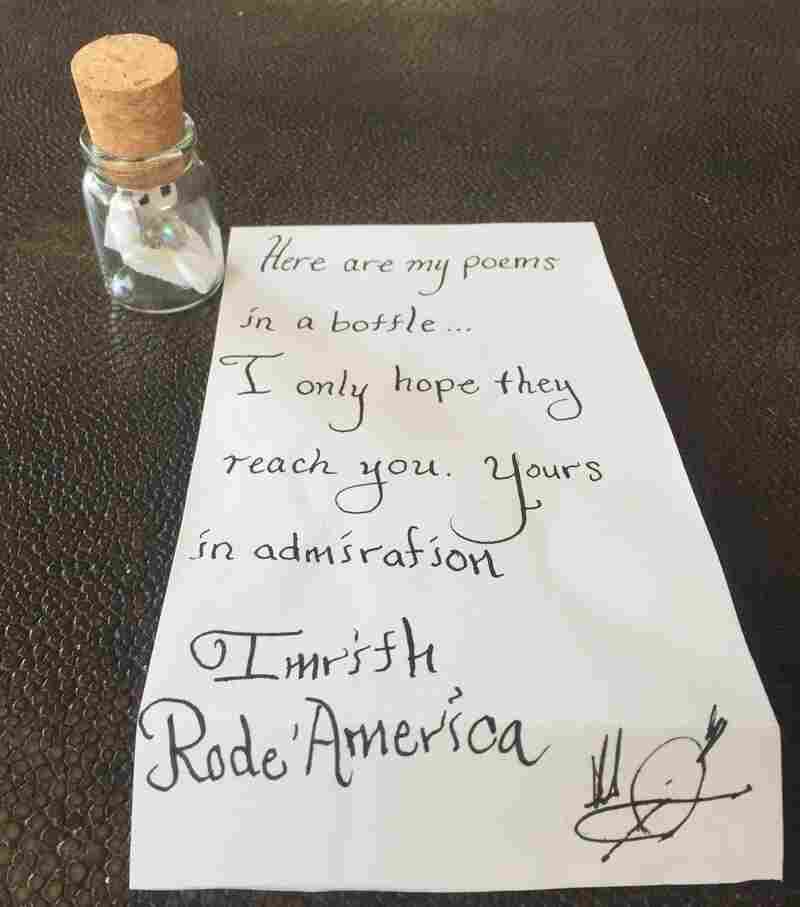 Here are my poems
in a bottle...
I only hope they
reach you. Yours
in admiration
Imrith
Rode'America